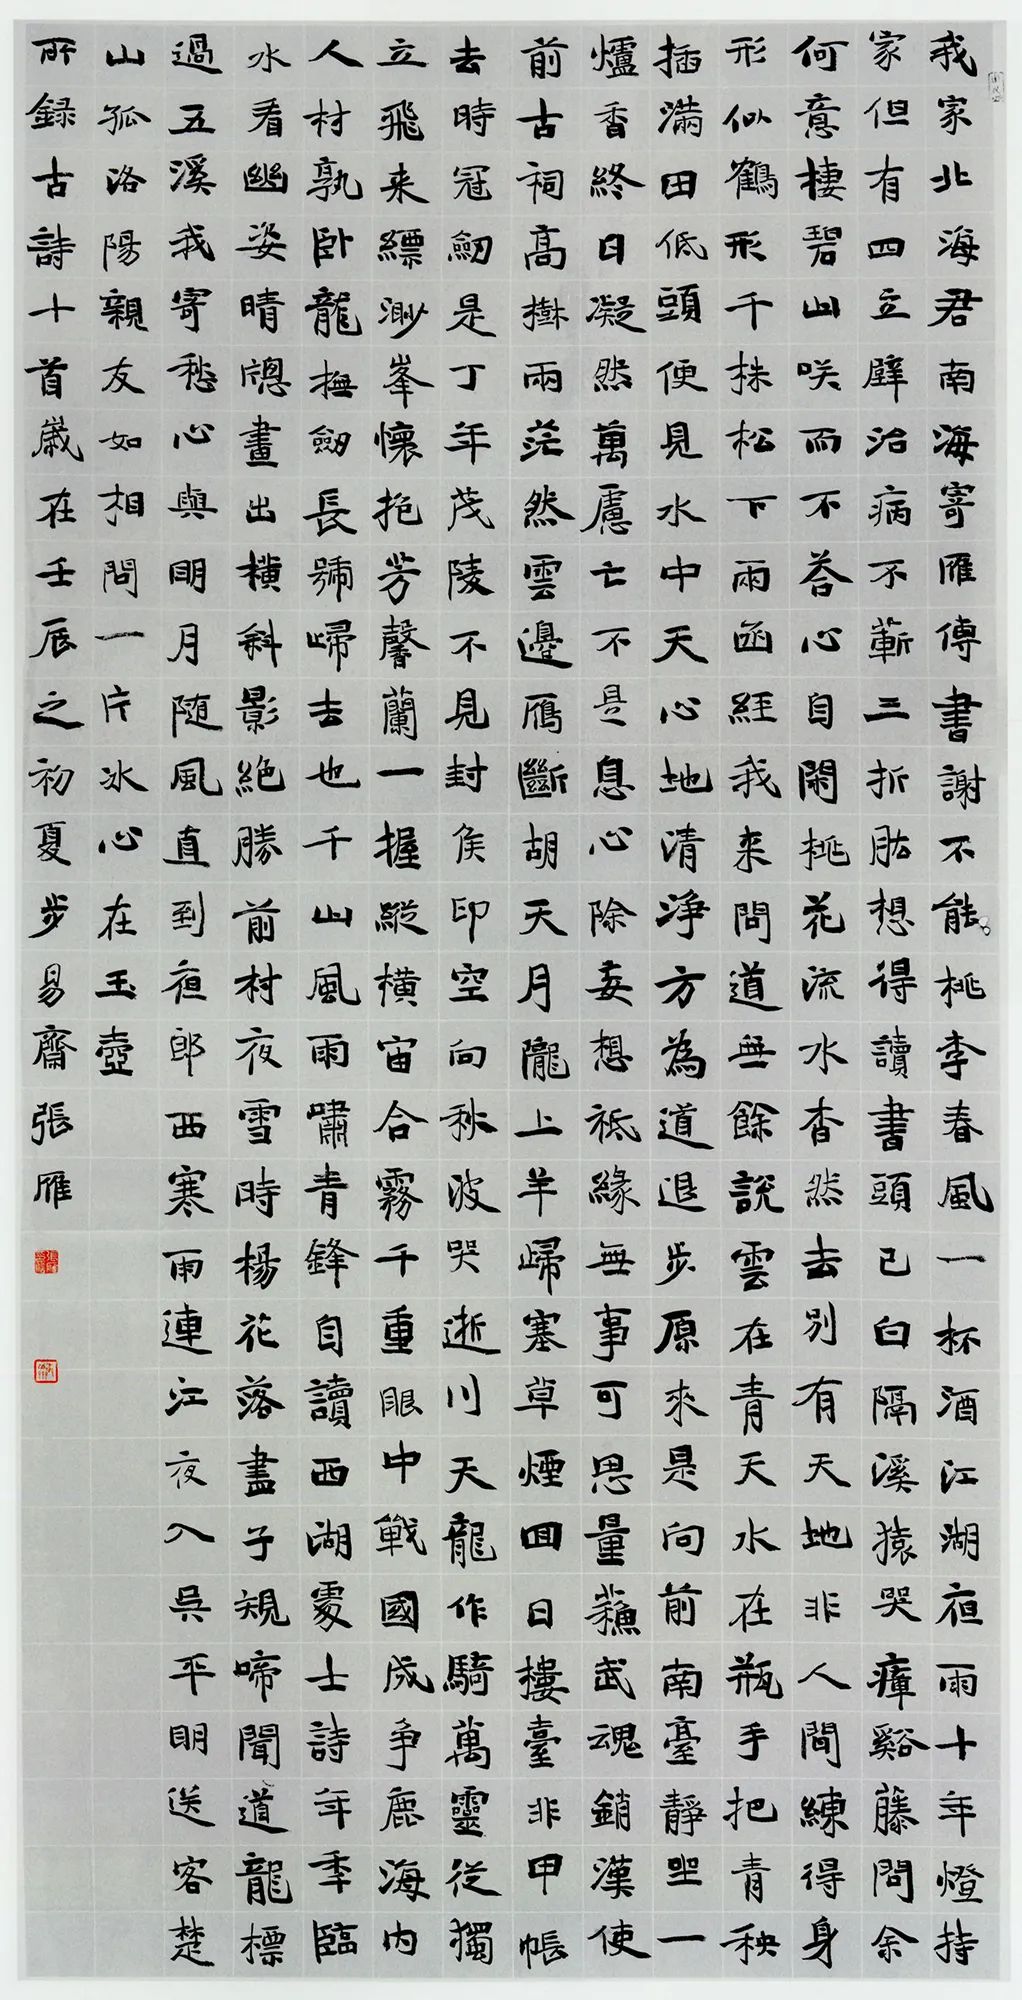 我家北海君南海寄雁傳書謝不能桃李春風一杯酒江湖夜雨十年燈持
家但有四立壁治病不蘄三折肱想得讀書頭已白隔溪猿哭瘴谿藤問余
何意棲碧山咲而不荅心自閑桃花流水杳然去別有天地非人間練得身
形似鶴形千株松下兩函經我来問道無餘說雲在青天水在瓶手把青秧
插滿田低頭便見水中天心地清淨方為道退步原来是向前南臺靜坐一
爐香終日凝然萬慮亡不是息心除妄想祗緣無事可思量蘇武魂銷漢使
前古祠高樹兩茫然雲邊鴈斷胡天月隴上羊歸塞草煙回日樓臺非甲帳
去時冠劒是丁年茂陵不見封侯印空向秋波哭逝川天龍作騎萬靈從獨
立飛来縹渺峯懷抱芳馨蘭一握縱橫宙合霧千重眼中戰國成争鹿海内
人材孰臥龍撫劒長號歸去也千山風雨嘯青鋒自讀西湖處士詩年年臨
水看幽姿晴窻畫出橫斜影絕勝前村夜雪時楊花落盡子規啼聞道龍標
過五溪我寄愁心與明月随風直到夜郎西寒雨連江夜入吳平明送客楚
山孤洛陽親友如相問一片冰心在玉壺
所録古詩十首歲在壬辰之初夏步易齋張雁